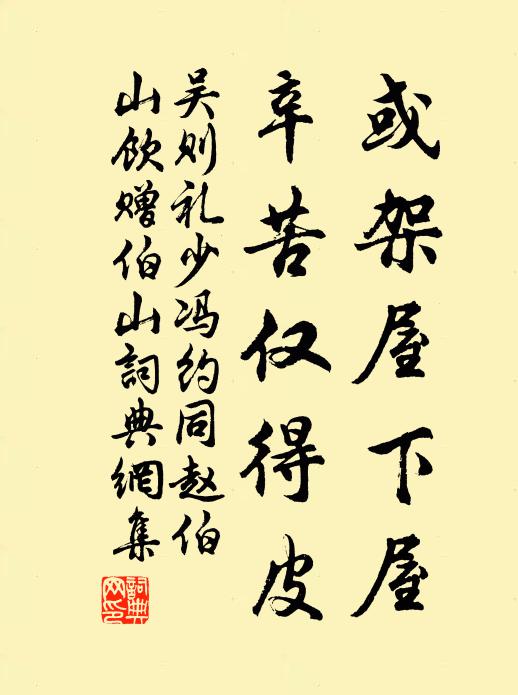 或架屋下屋
辛苦仅得皮
吴则礼少冯约同赵伯
山饮赠伯山詞典網集
詞典
网印